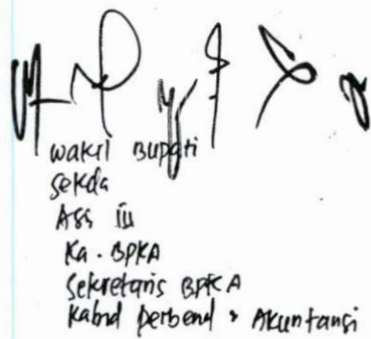 wakil Bupati
sekda
Ass iii
Ka. BPKA
Sekretaris BPKA
Kabid perbend & Akuntansi